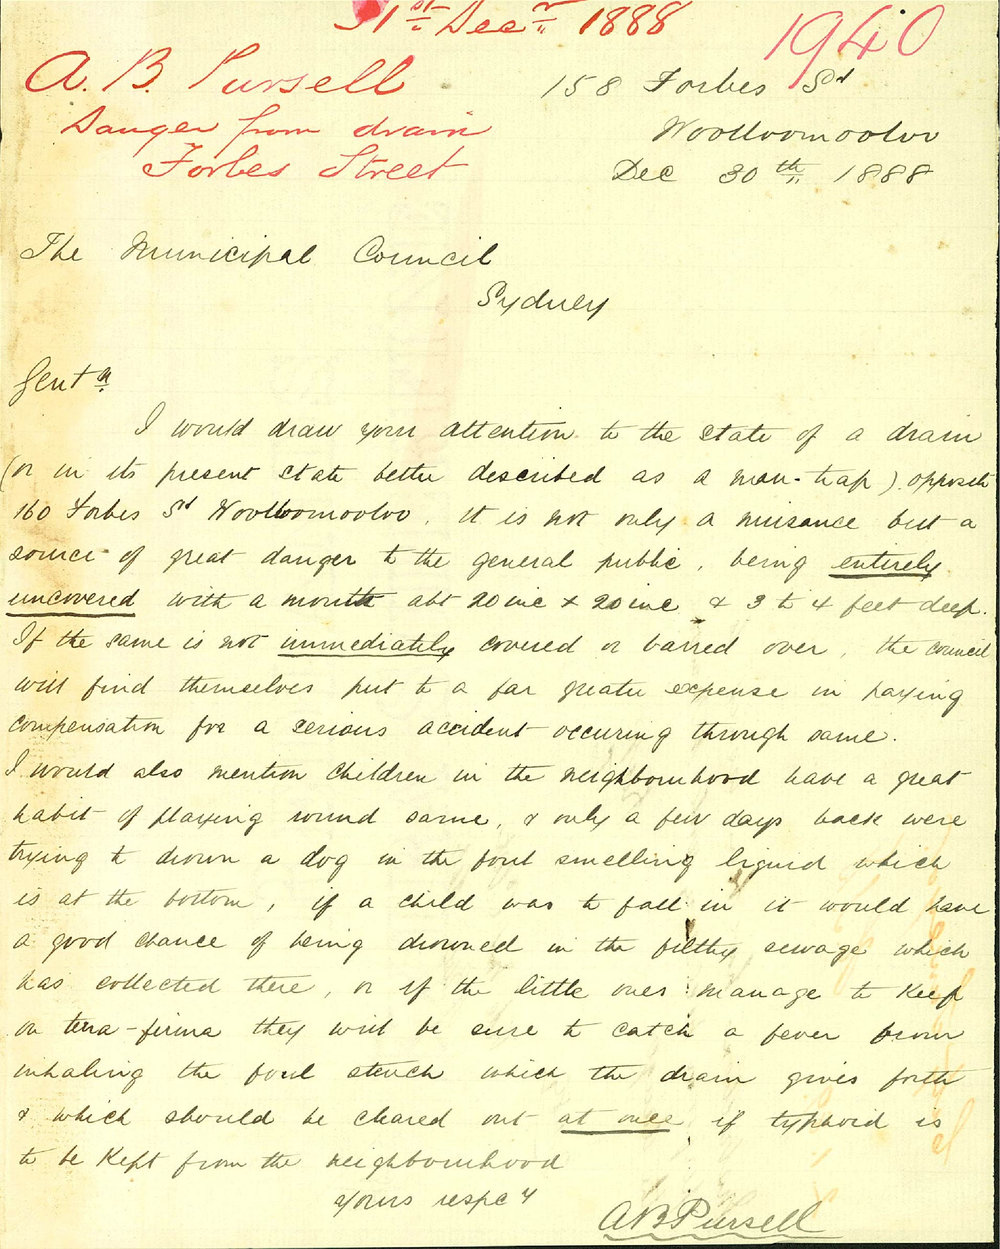 31st Decr 1888
1940
A. B. Pursell
Danger from drain
Forbes Street
158 Forbes St
Woolloomooloo
Dec 30th 1888
The Municipal Council
Sydney
Gentn
I would draw your attention to the state of a drain
(or in its present state better described as a man-trap) opposite
160 Forbes St Woolloomooloo, it is not only a nuisance but a
source of great danger to the general public, being entirely
uncovered with a mouth abt 20 inc x 20 inc & 3 to 4 feet deep.
If the same is not immediately covered or barred over, the council
will find themselves put to a far greater expense in paying
compensation for a serious accident occuring through same.
I would also mention children in the neighbourhood have a great
habit of playing round same, & only a few days back were
trying to drown a dog in the foul smelling liquid which
is at the bottom, if a child was to fall in it would have
a good chance of being drowned in the filthy sewage which
has collected there, or if the little ones manage to keep
on terra-firma they will be sure to catch a fever from
inhaling the foul stench which the drain gives forth
& which should be cleared out at once if typhoid is
to be kept from the neighbourhood
Yours respcy
A B Pursell